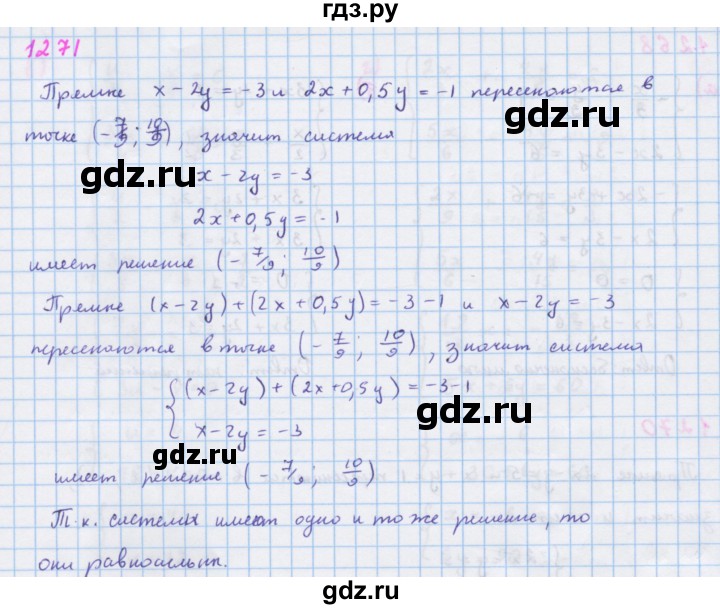 гдз.ру
1271
Прямые x - 2y = -3 и 2x + 0,5y = -1 пересекаются в
точке (-7/9; 10/9), значит система
gdz.ru
x - 2y = -3
gdz.ru
2x + 0,5y = -1
имеет решение (-7/9; 10/9)
Прямые (x - 2y) + (2x + 0,5y) = -3 - 1 и x - 2y = -3
пересекаются в точке (-7/9; 10/9), значит система
{ (x - 2y) + (2x + 0,5y) = -3 - 1
gdz.ru
x - 2y = -3
имеет решение (-7/9; 10/9)
Т.к. системы имеют одно и то же решение, то
они равносильн.
gdz.ru
gdz.ru